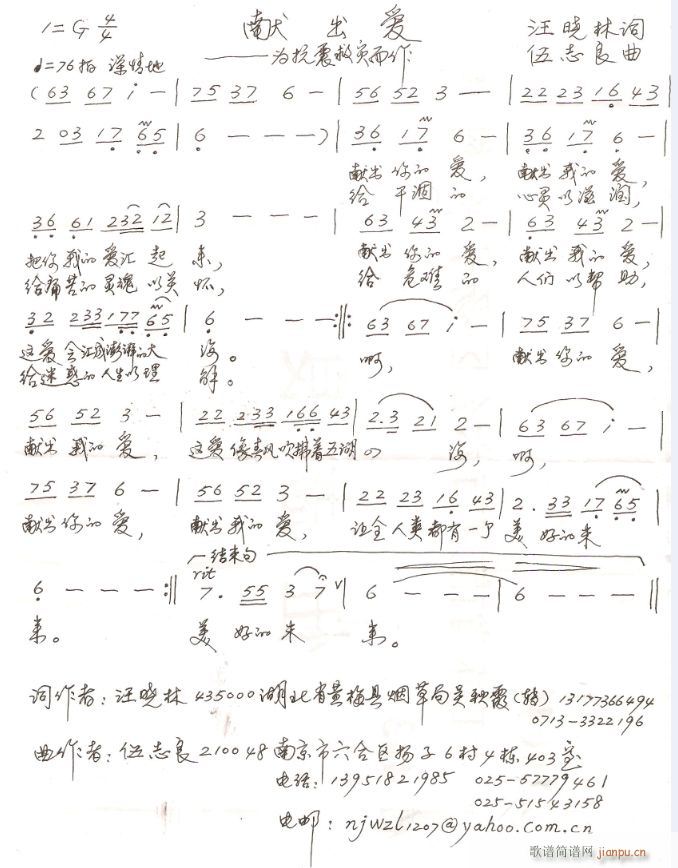 1=G 4/4 献出爱 汪晓林词
——为抗震救灾而作 伍志良曲
♩=76拍 深情地
( 63 67 i — | 75 37 6 — | 56 52 3 — | 22 23 16 43 |
2 03 17 65 | 6 — — — ) | 36 17 6 — | 36 17 6 — |
献出你的爱, 献出我的爱,
给干涸的 心灵以滋润,
36 61 232 12 | 3 — — — | 63 43 2 — | 63 43 2 — |
把你我的爱汇起来, 献出你的爱, 献出我的爱,
给痛苦的灵魂以关怀, 给危难的 人们以帮助,
32 233 177 65 | 6 — — — :‖: 63 67 i — | 75 37 6 — |
这爱会汇成澎湃的大海。 啊, 献出你的爱,
给迷惑的人生以理解。
56 52 3 — | 22 233 166 43 | 2.3 21 2 — | 63 67 i — |
献出我的爱, 这爱像春风吹拂着五湖的海, 啊,
75 37 6 — | 56 52 3 — | 22 23 16 43 | 2. 33 17 65 |
献出你的爱, 献出我的爱, 让全人类都有一个美好的未
结束句
rit
6 — — — :‖ 7. 55 3 7 | 6 — — — | 6 — — — ‖
来。 美好的未来。
词作者: 汪晓林 435000 湖北省黄梅县烟草局吴秋霞(转) 13177366494
0713-3322196
曲作者: 伍志良 210048 南京市六合区扬子6村4栋403室
电话: 13951821985 025-57779461
025-51543158
电邮: njwzl1207@yahoo.com.cn
歌谱简谱网
jianpu.cn